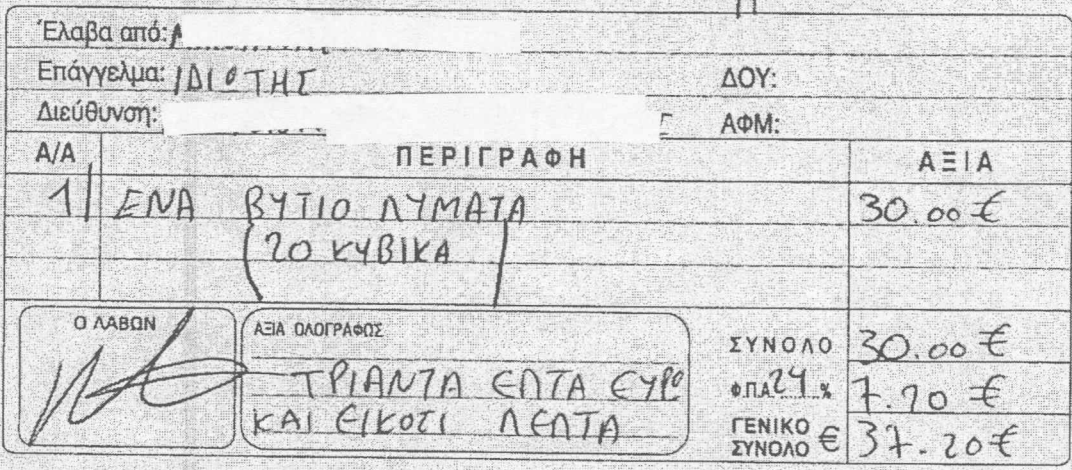 Έλαβα από:
Επάγγελμα: ΙΔΙΟΤΗΣ ΔΟΥ:
Διεύθυνση: ΑΦΜ:
Α/Α ΠΕΡΙΓΡΑΦΗ ΑΞΙΑ
1 ΕΝΑ ΒΥΤΙΟ ΛΥΜΑΤΑ 30.00 €
(20 ΚΥΒΙΚΑ)
Ο ΛΑΒΩΝ
ΑΞΙΑ ΟΛΟΓΡΑΦΩΣ
ΤΡΙΑΝΤΑ ΕΠΤΑ ΕΥΡΟ
ΚΑΙ ΕΙΚΟΣΙ ΛΕΠΤΑ
ΣΥΝΟΛΟ 30.00 €
Φ.Π.Α. 24 % 7.20 €
ΓΕΝΙΚΟ ΣΥΝΟΛΟ € 37.20 €